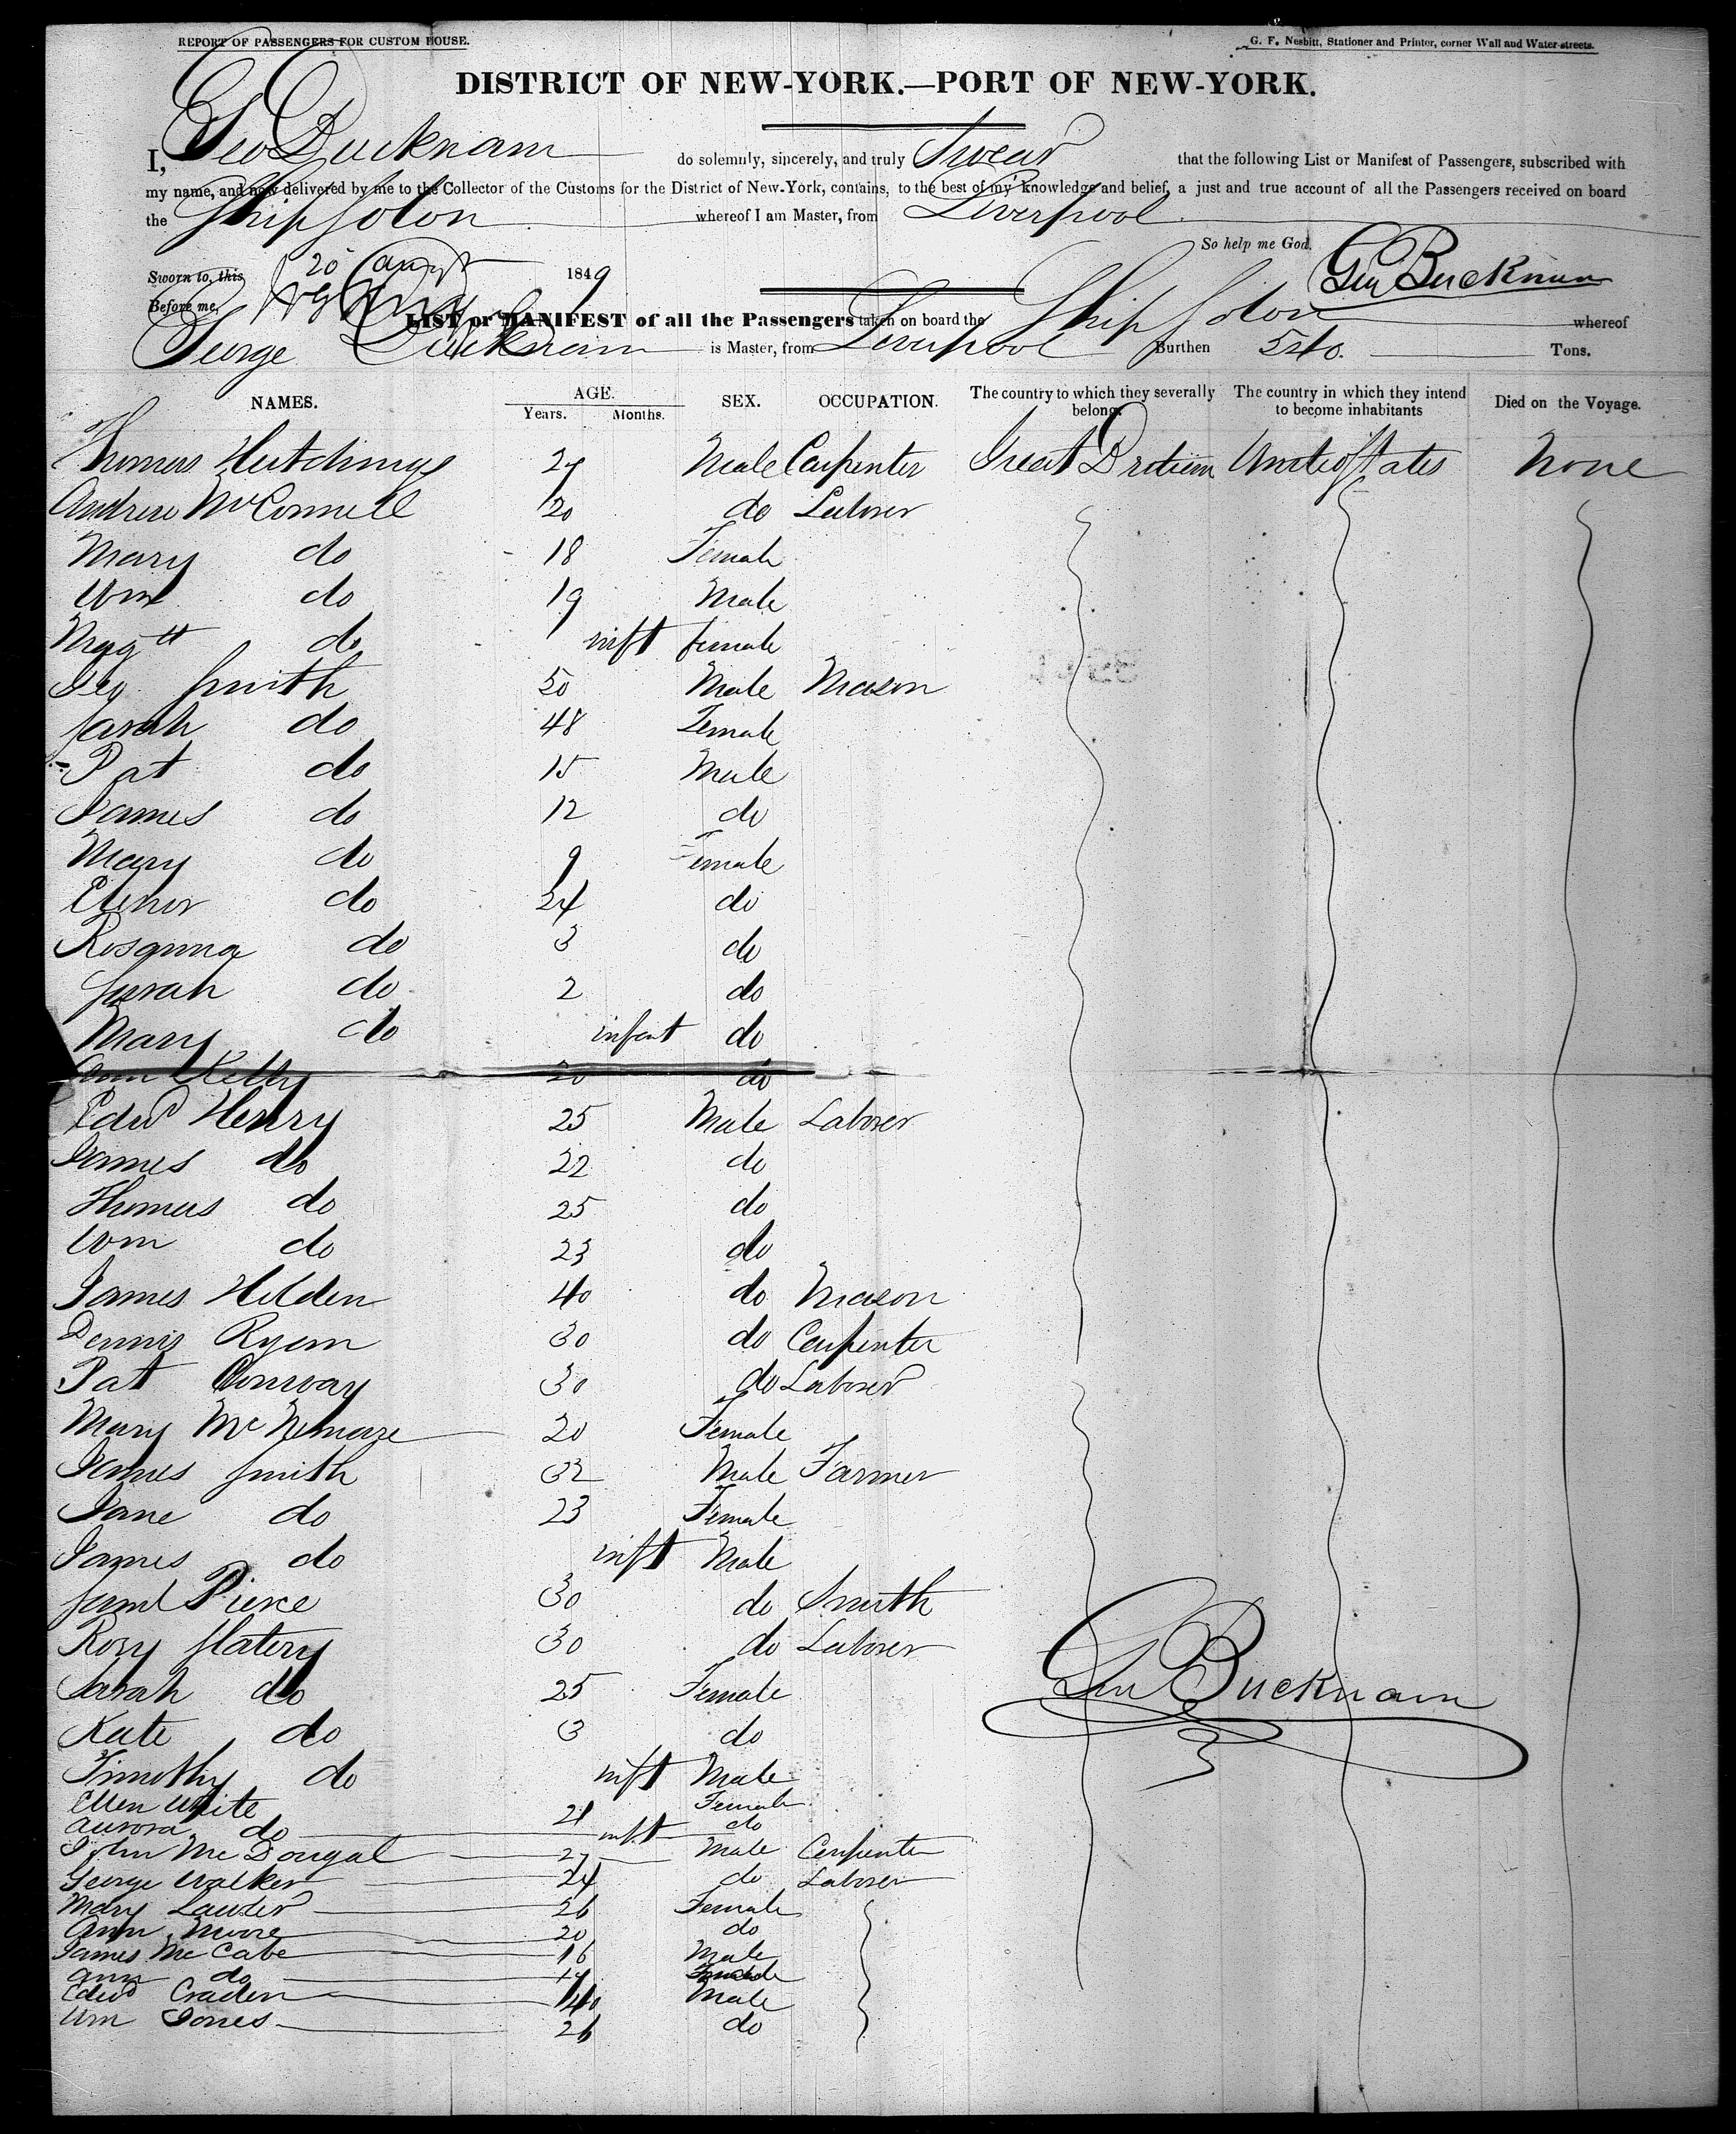 REPORT OF PASSENGERS FOR CUSTOM HOUSE.
G. F. Nesbitt, Stationer and Printer, corner Wall and Water-streets.
DISTRICT OF NEW-YORK.—PORT OF NEW-YORK.
I, Geo Bucknam do solemnly, sincerely, and truly Swear that the following List or Manifest of Passengers, subscribed with
my name, and now delivered by me to the Collector of the Customs for the District of New-York, contains, to the best of my knowledge and belief, a just and true account of all the Passengers received on board
the Ship Solon whereof I am Master, from Liverpool
So help me God. Geo Bucknam
Sworn to, this 20 Augt 1849
Before me,
LIST or MANIFEST of all the Passengers taken on board the Ship Solon whereof
George Bucknam is Master, from Liverpool Burthen 540 Tons.
NAMES. AGE. Years. Months. SEX. OCCUPATION. The country to which they severally belong. The country in which they intend to become inhabitants Died on the Voyage.
Thomas Hutchings 27 Male Carpenter Great Britain United States None
Andrew McConnell 20 do Laborer
Mary do 18 Female
Wm do 19 Male
Magtt do inft female
Geo Smith 50 Male Mason
Sarah do 48 Female
Pat do 15 Male
James do 12 do
Mary do 9 Female
Elenor do 24 do
Rosanna do 3 do
Sarah do 2 do
Mary do infant do
Ann Kelly 20 do
Edwd Henry 25 Male Laborer
James do 22 do
Thomas do 25 do
Wm do 23 do
James Hilden 40 do Mason
Dennis Ryan 30 do Carpenter
Pat Conway 30 do Laborer
Mary Mc 20 Female
James Smith 32 Male Farmer
Jane do 23 Female
James do inft Male
Saml Pierce 30 do Smith
Rory Slatery 30 do Laborer
Sarah do 25 Female
Geo Bucknam
Kate do 3 do
Timothy do inft Male
Ellen White 21 Female
Aurora do inft do
John McDougal 27 Male Carpenter
George Walker 24 do Laborer
Mary Lawler 26 Female
Ann Moore 20 do
James McCabe 16 Male
Ann do 14 Female
Edwd Craden 40 Male
Wm Jones 26 do